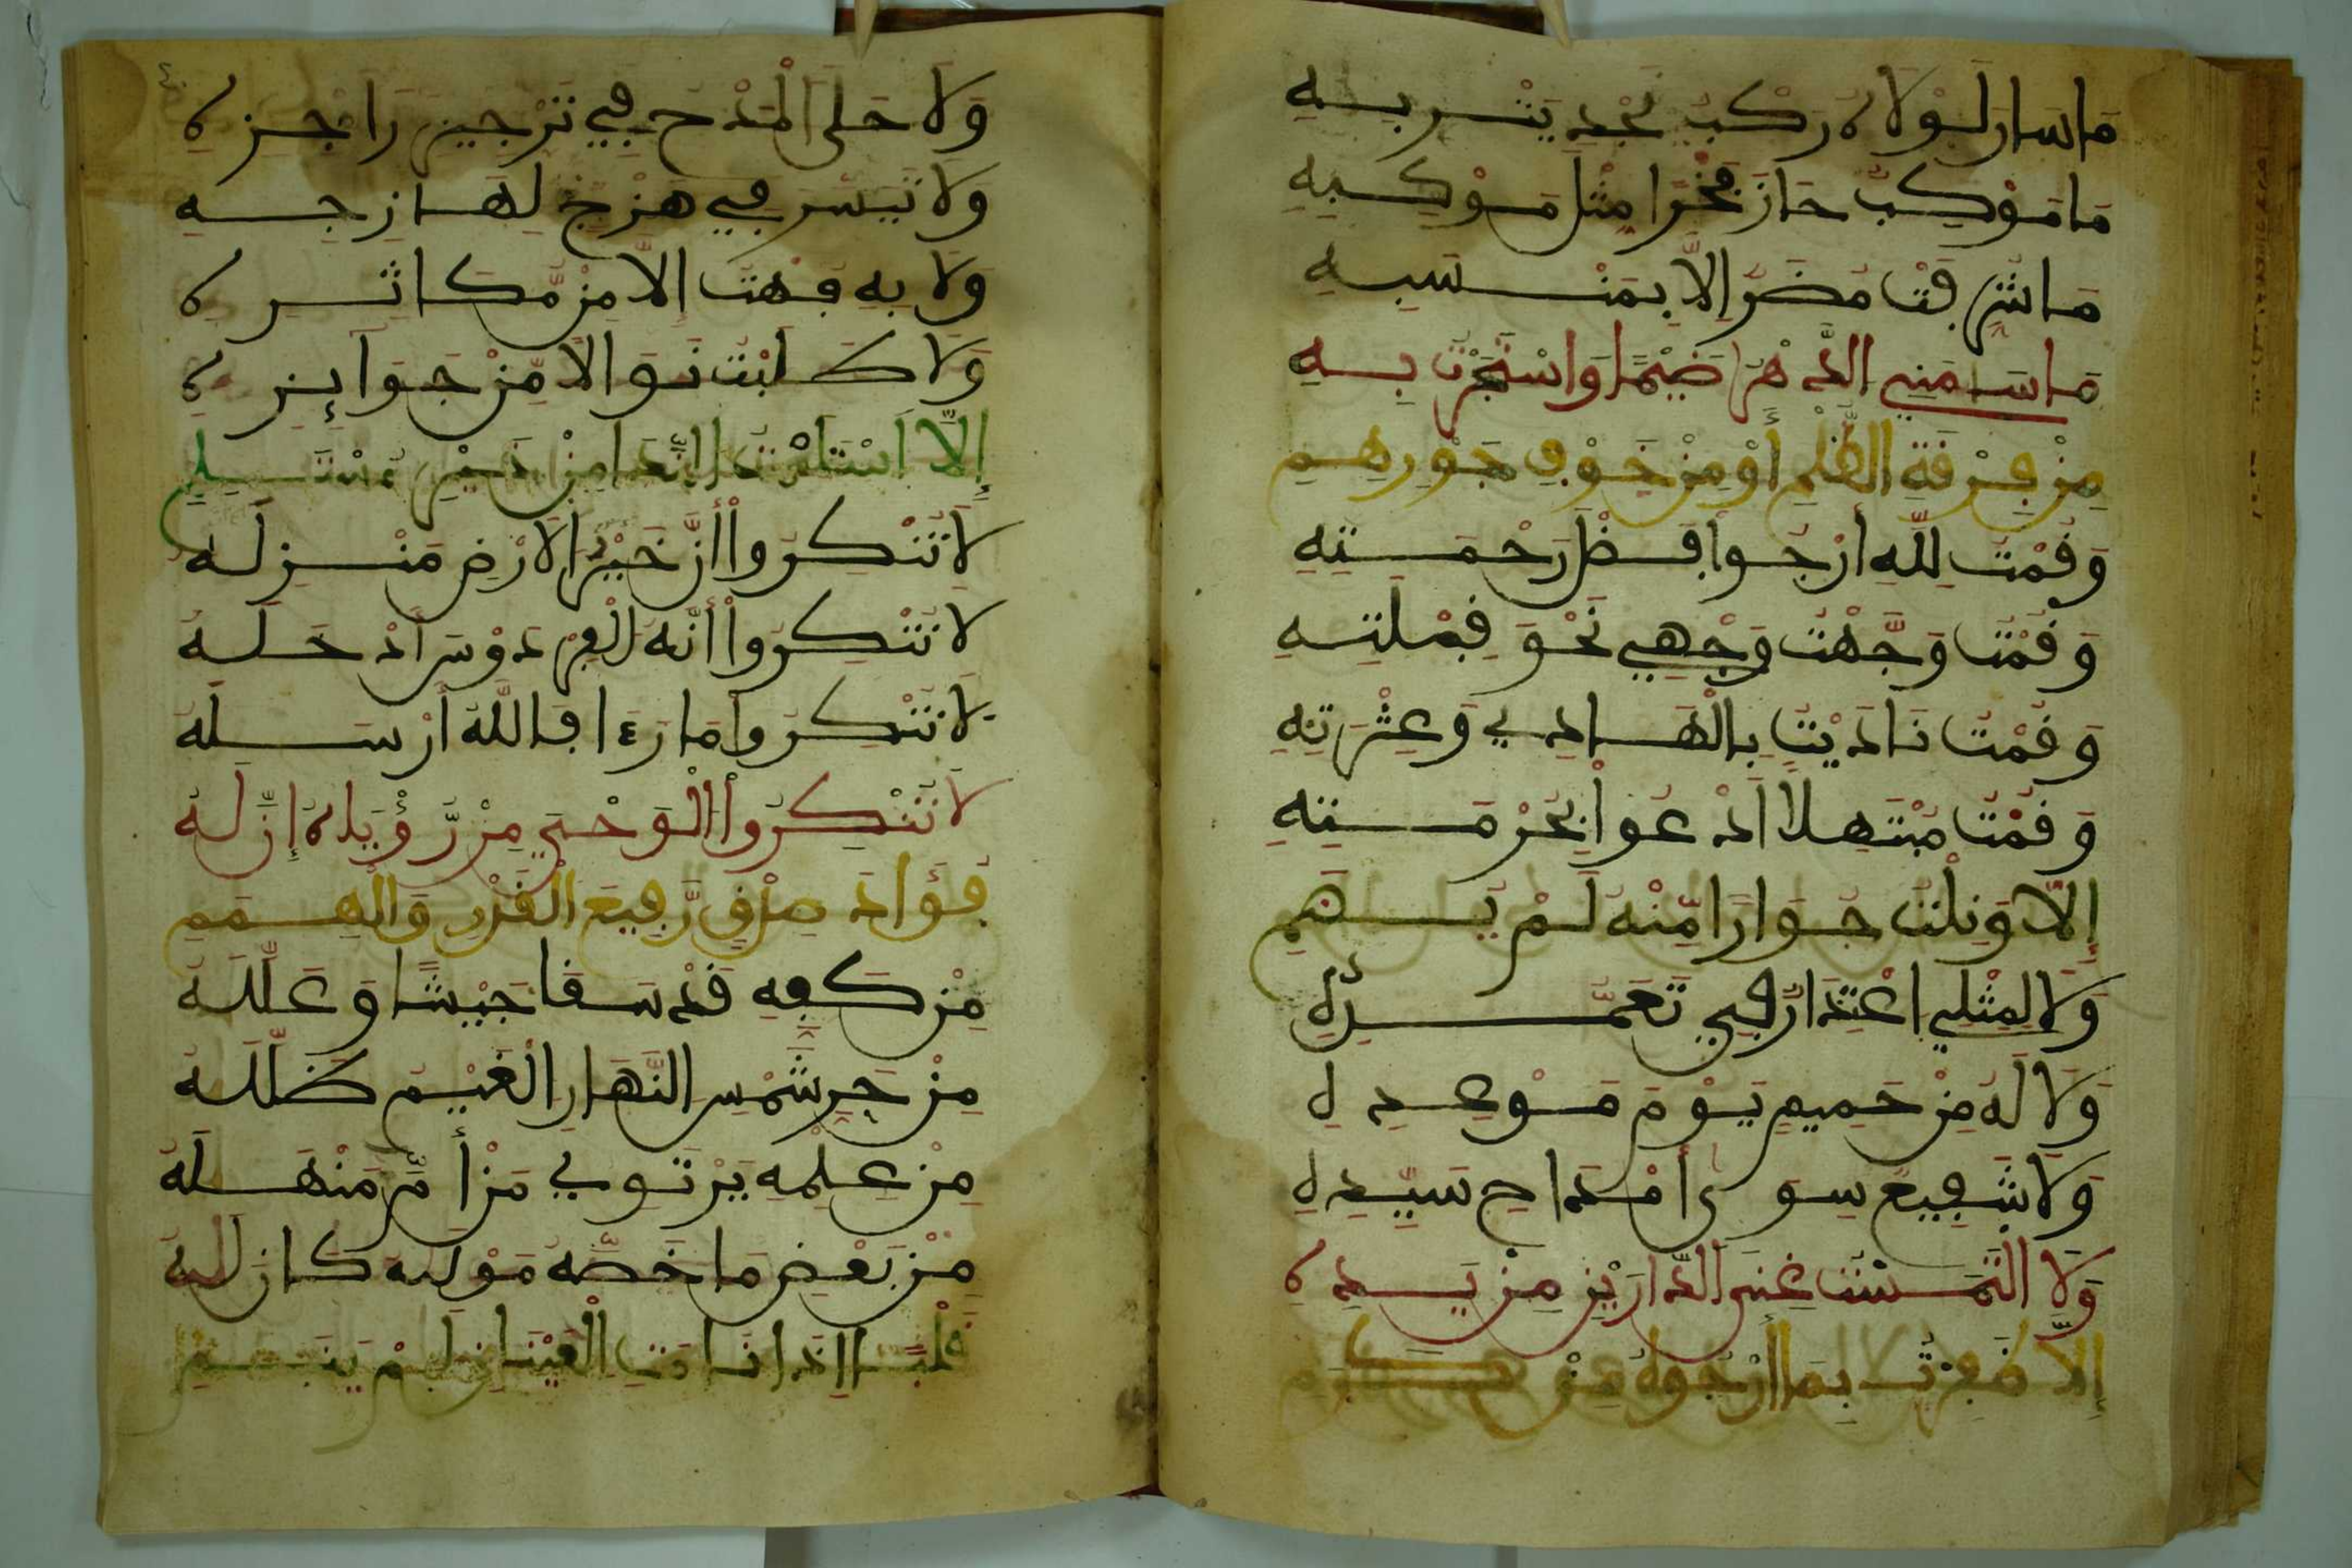 مَا سَارَ لَوْلَاهُ رَكْبُ نَجْدِ يَثْرِبِهِ
مَا مَوْكِبٌ حَازَ فَخْرًا مِثْلَ مَوْكِبِهِ
مَا شُرِّفَتْ مُضَرٌ إِلَّا بِمَنْسَبِهِ
مَا سَامَنِي الدَّهْرُ ضَيْمًا وَاسْتَجَرْتُ بِهِ
مِنْ فِرْقَةِ الظُّلْمِ أَوْ مِنْ خَوْفِ جَوْرِهِمِ
وَقُمْتُ لِلَّهِ أَرْجُواْ فَضْلَ رَحْمَتِهِ
وَقُمْتُ وَجَّهْتُ وَجْهِي نَحْوَ قِبْلَتِهِ
وَقُمْتُ نَادَيْتُ بِالْهَادِي وَعِتْرَتِهِ
وَقُمْتُ مُبْتَهِلًا أَدْعُواْ بِحُرْمَتِهِ
إِلَّا وَنِلْتُ جِوَارًا مِّنْهُ لَمْ
وَلَا لِمِثْلِي اعْتِذَارٌ فِي تَعَمُّدِهِ
وَلَا لَهُ مِنْ حَمِيمٍ يَوْمَ مَوْعِدِهِ
وَلَا شَفِيعٌ سِوَى أَمْدَاحِ سَيِّدِهِ
وَلَا الْتَمَسْتُ غِنَى الدَّارَيْنِ مِنْ يَدِهِ
إِلَّا ظَفِرْتُ بِمَا أَرْجُوهُ مِنْ كَرَمِ
وَلَا حَلَى الْمَدْحُ فِي تَرْجِيزِ رَاجِزِهِ
وَلَا تَيَسَّرَ فِي هَزْجٍ لِهَازِجِهِ
وَلَا بِهِ فُهْتُ إِلَّا مِنْ مُّكَاثِرِهِ
وَلَا طَلَبْتُ نَوَالًا مِّنْ جَوَآئِزِهِ
إِلَّا اسْتَلَمْتُ النَّدَا مِنْ خَيْرِ مُسْتَلَمِ
لَا تُنْكِرُواْ أَنَّ خَيْرَ الْأَرْضِ مَنْزِلُهُ
لَا تُنْكِرُواْ أَنَّهُ الْفِرْدَوْسَ أُدْخِلَهُ
لَا تُنْكِرُواْ مَا رَءَا فَاللَّهُ أَرْسَلَهُ
لَا تُنْكِرُواْ الْوَحْيَ مِنْ رُّؤْيَاهُ إِنَّ لَهُ
فُؤَادَ صِدْقٍ رَّفِيعَ الْقَدْرِ وَالْهِمَمِ
مِنْ كَفِّهِ قَدْ سَقَا جَيْشًا وَعَلَّلَهُ
مِنْ حَرِّ شَمْسِ النَّهَارِ الْغَيْمُ ظَلَّلَهُ
مِنْ عِلْمِهِ يَرْتَوِي مَنْ أَمَّ مَنْهَلَهُ
مِنْ بَعْضِ مَا خَصَّهُ مَوْلَيهُ كَانَ لَهُ
قَلْبًا إِذَا نَامَتِ الْعَيْنَانِ لَمْ يَنَمِ